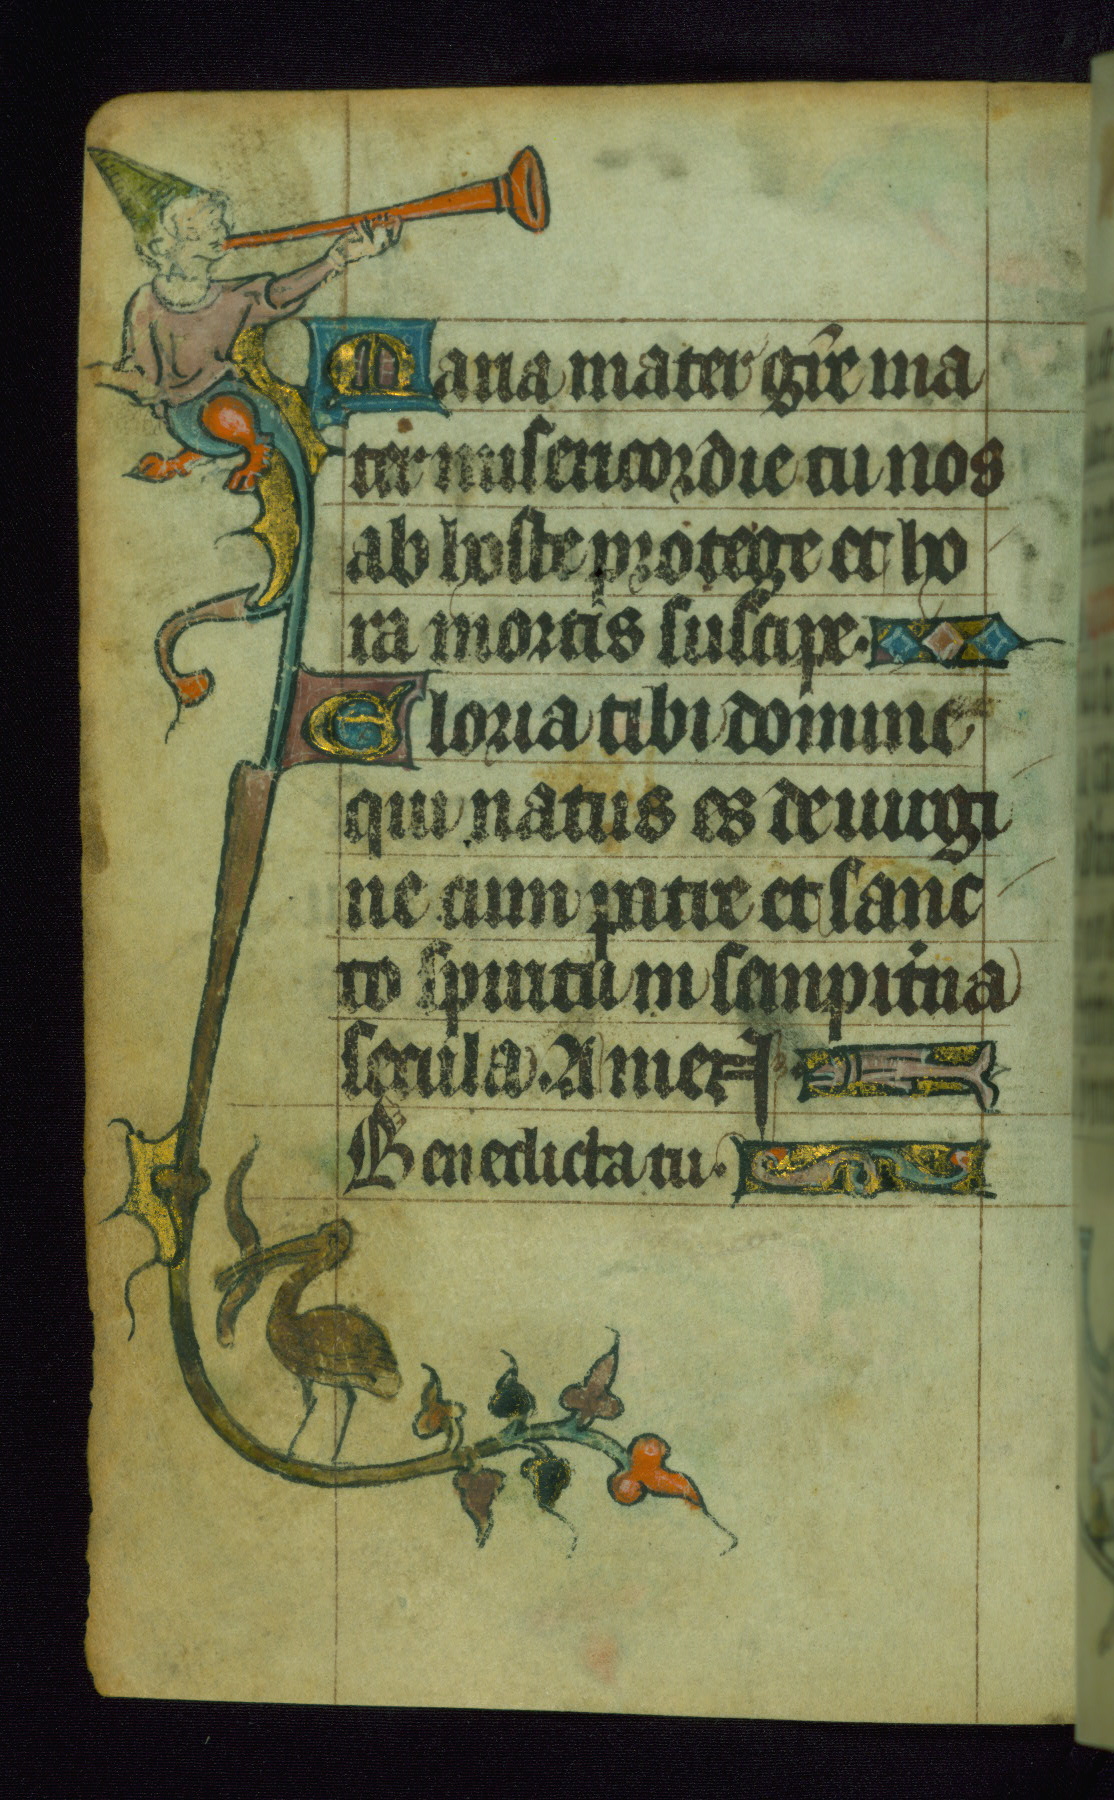 Maria mater gr̃e ma
ter misericordie tu nos
ab hoste protege et ho
ra mortis suscipe.
Gloria tibi domine
qui natus es de uirgi
ne cum patre et sanc
to spiritu in sempit̾na
secula. Amen
Benedicta tu.